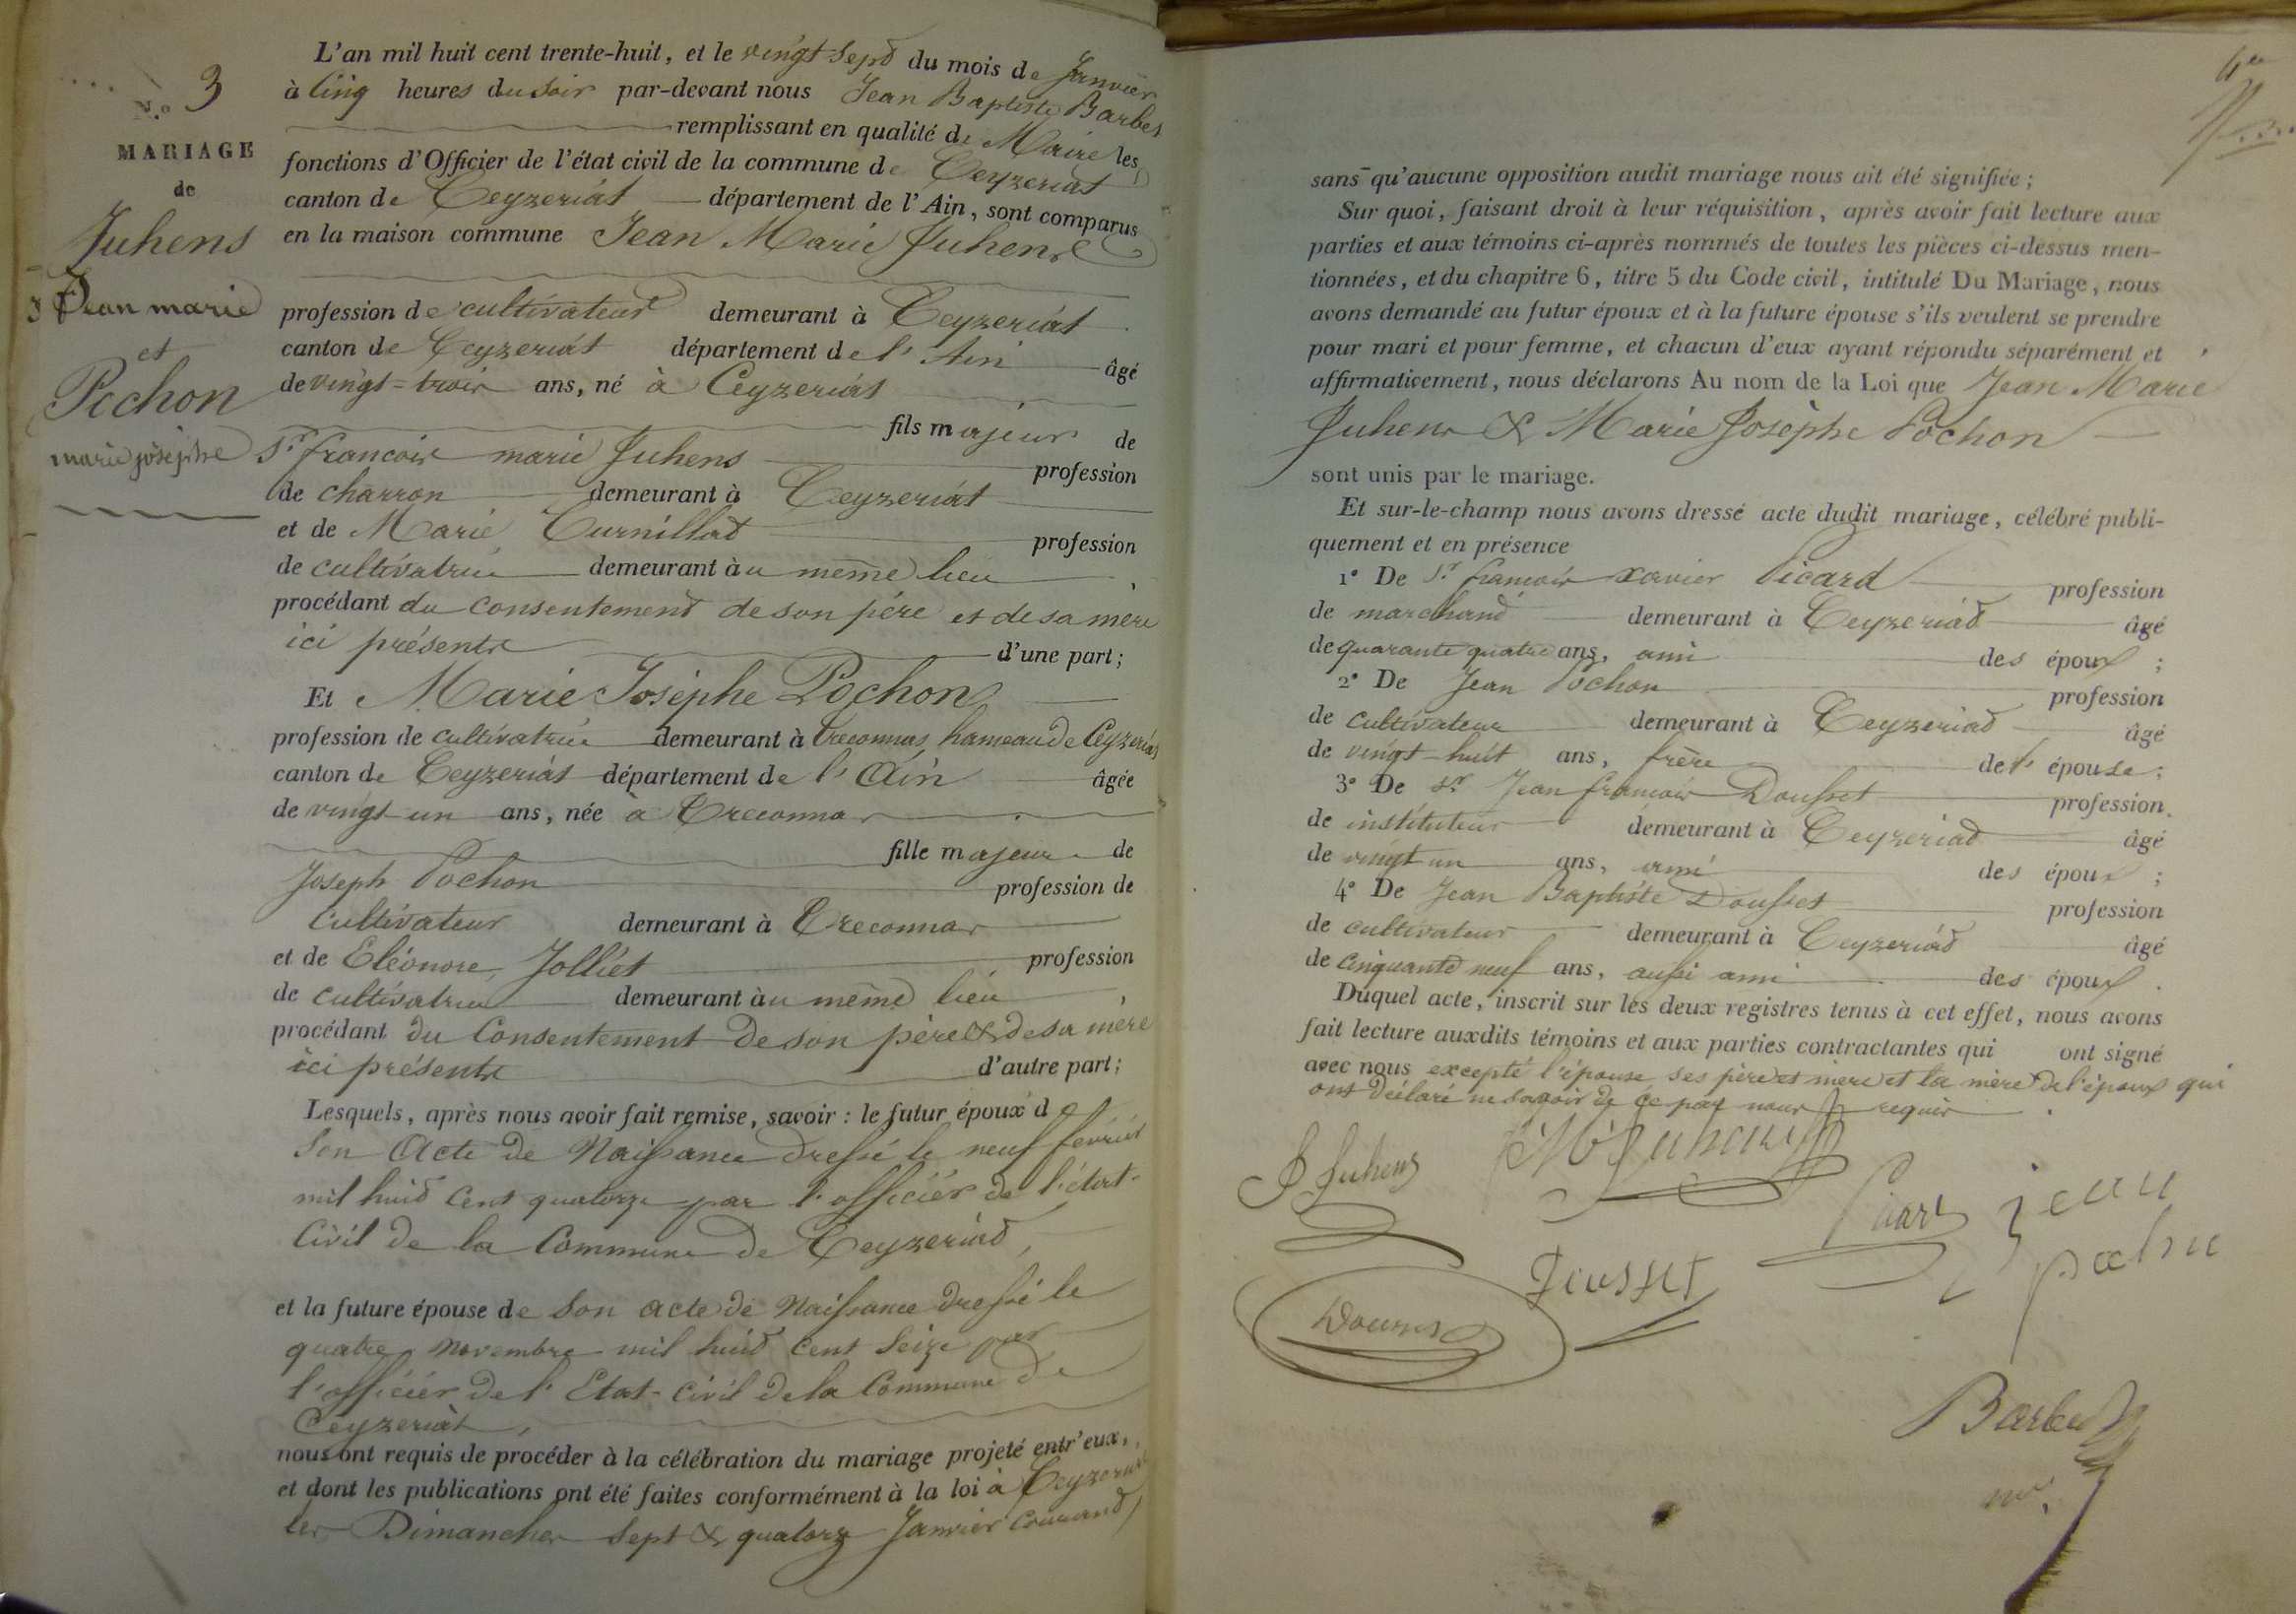 N.o 3
MARIAGE
de
Juhens
Jean marie
et
Pochon
marie josèphe
L'an mil huit cent trente-huit, et le vingt-sept du mois de Janvier
à Cinq heures du soir par-devant nous Jean Baptiste Barbet
remplissant en qualité de Maire les
fonctions d'Officier de l'état civil de la commune de Ceyzeriat
canton de Ceyzeriát département de l'Ain, sont comparus
en la maison commune Jean Marie Juhens
profession de cultivateur demeurant à Ceyzeriát
canton de Ceyzeriát département de l'Ain âgé
de vingt-trois ans, né à Ceyzeriát
fils majeur de
Sr. francois marie Juhens profession
de charron demeurant à Ceyzeriát
et de Marie Curnillat profession
de cultivatrice demeurant àu même lieu,
procédant du consentement de son père et de sa mère
ici présents d'une part;
Et Marie Josèphe Pochon
profession de cultivatrice demeurant à Treconnas, hameau de Ceyzeriát
canton de Ceyzeriát département de l'Ain âgée
de vingt-un ans, née à Treconnas
fille majeure de
Joseph Pochon profession de
cultivateur demeurant à Treconnas
et de Eléonore Jolliet profession
de cultivatrice demeurant àu même lieu,
procédant du Consentement de son père & de sa mère
ici présents d'autre part;
Lesquels, après nous avoir fait remise, savoir: le futur époux de
Son Acte de Naissance dressé le neuf fevrier
mil huit cent quatorze par l'officiér de l'état-
Civil de la Commune de Ceyzeriat,
et la future épouse de Son acte de Naissance dressé le
quatre Novembre mil huit cent Seize par
l'officiér de l'Etat-Civil de la Commune de
Ceyzeriàt,
nous ont requis de procéder à la célébration du mariage projeté entr'eux,
et dont les publications ont été faites conformément à la loi à Ceyzeriat
les Dimanches Sept & quatorze Janvier Courant,
sans qu'aucune opposition audit mariage nous ait été signifiée;
Sur quoi, faisant droit à leur réquisition, après avoir fait lecture aux
parties et aux témoins ci-après nommés de toutes les pièces ci-dessus men-
tionnées, et du chapitre 6, titre 5 du Code civil, intitulé Du Mariage, nous
avons demandé au futur époux et à la future épouse s'ils veulent se prendre
pour mari et pour femme, et chacun d'eux ayant répondu séparément et
affirmativement, nous déclarons Au nom de la Loi que Jean Marie
Juhens & Marie Josèphe Pochon
sont unis par le mariage.
Et sur-le-champ nous avons dressé acte dudit mariage, célébré publi-
quement et en présence
1° De Sr. francois xavier Picard profession
de marchand demeurant à Ceyzeriat âgé
de quarante quatre ans, ami des époux;
2° De Jean Pochon profession
de cultivateur demeurant à Ceyzeriat âgé
de vingt-huit ans, frère de l'épouse;
3° De Sr. Jean francois Dousset profession
de instituteur demeurant à Ceyzeriat âgé
de vingt un ans, ami des époux;
4° De Jean Baptiste Dousset profession
de cultivateur demeurant à Ceyzeriát âgé
de cinquante neuf ans, aussi ami des époux.
Duquel acte, inscrit sur les deux registres tenus à cet effet, nous avons
fait lecture auxdits témoins et aux parties contractantes qui ont signé
avec nous excepté l'épouse ses père et mère et la mère de l'époux qui
ont déclaré ne savoir de ce par nous requis.
Juhens
Juhens
Picard
jean
Dousset
Barbet